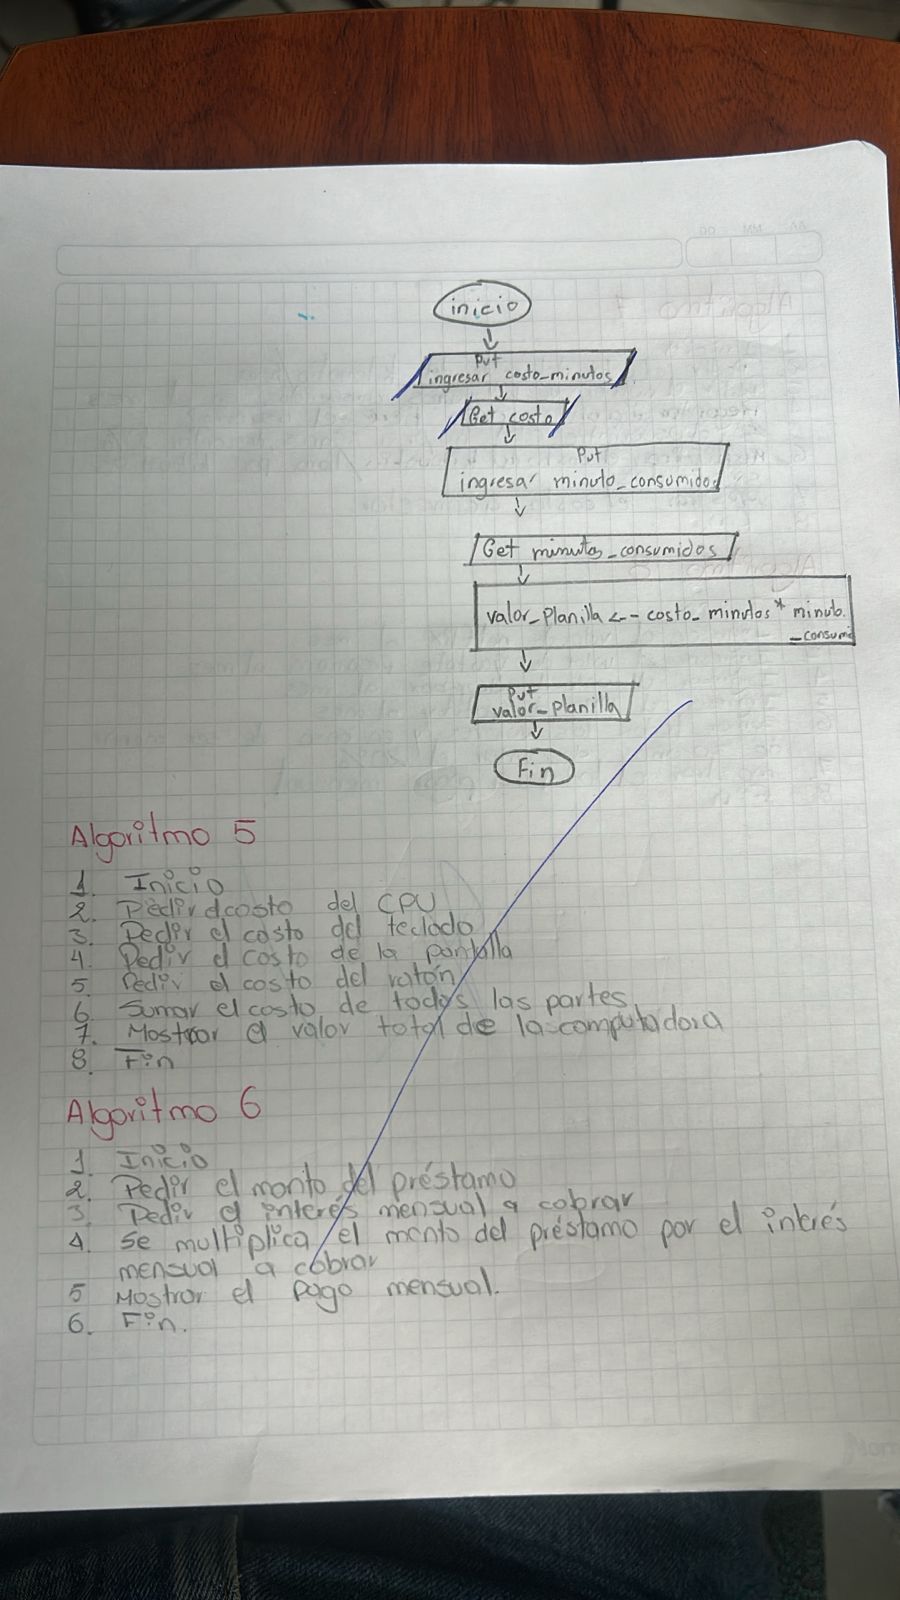 inicio
Put
ingresar costo_minutos
Get costo
Put
ingresar minuto_consumidos
Get minutos_consumidos
valor_Planilla <-- costo_minutos * minuto.
_consumi
Put
valor_Planilla
Fin
Algoritmo 5
1. Inicio
2. Pedir el costo del CPU
3. Pedir el costo del teclado
4. Pedir el costo de la pantalla
5. Pedir el costo del ratón
6. Sumar el costo de todas las partes
7. Mostrar el valor total de la computadora
8. Fin
Algoritmo 6
1. Inicio
2. Pedir el monto del préstamo
3. Pedir el interés mensual a cobrar
4. Se multiplica el monto del préstamo por el interés
mensual a cobrar
5 Mostrar el pago mensual.
6. Fin.